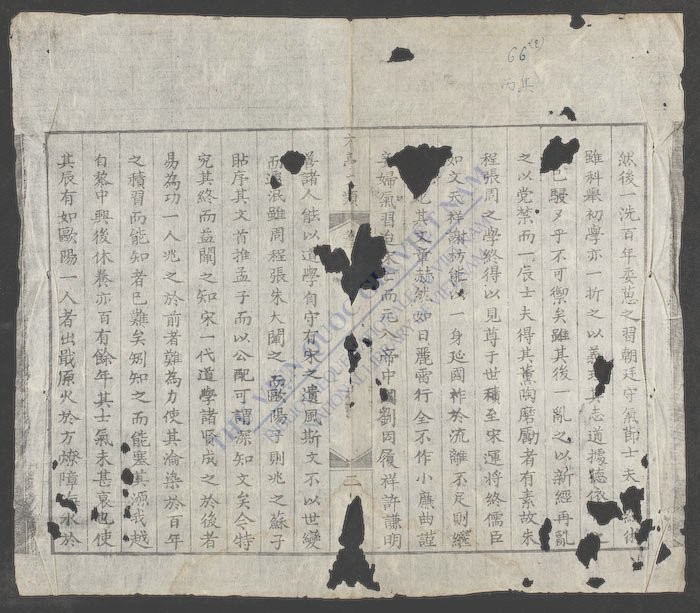 66
丙其
然後一洗百年委苶之習朝廷守氣節士夫
雖科舉初學亦一折之以義理其志道據德依
已駸々乎不可禦矣雖其後一亂之以新經再亂
之以党禁而一辰士夫得其薰陶磨勵者有素故朱
程張周之學終得以見尊于世積至宋運將終儒臣
如文天祥謝枋能以一身延國祚於流離不足則繼
其文章赫然如日麗雷行全不作小廉曲謹
婦氣習而元入帝中國劉因履祥許謙明
善諸人能以道學自守有宋之遺風斯文不以世變
而泯雖周程張朱大闡之而歐陽子則兆之蘇子
貼序其文首推孟子而以公配可謂深知文矣今特
究其終而益闡之知宋一代道學諸賢成之於後者
易為功一人兆之於前者難為力使其淪染於百年
之積習而能知者已難矣矧知之而能塞其源哉越
有黎中興後休養亦百有餘年其士氣未甚衰也使
其辰有如歐陽一人者出戢原火於方燎障水於
方亭 類
二
THƯ VIỆN QUỐC GIA VIỆT NAM
NATIONAL LIBRARY OF VIETNAM